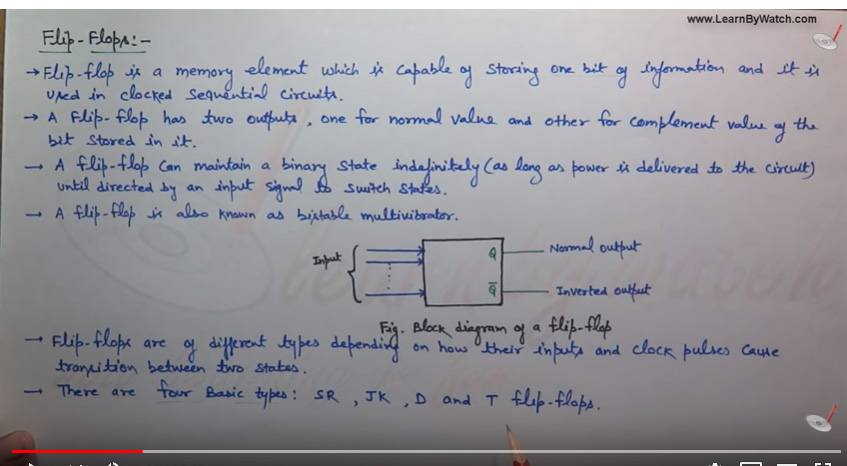 www.LearnByWatch.com
Flip-Flops:-
→ Flip-flop is a memory element which is capable of storing one bit of information and it is
used in clocked sequential circuits.
→ A Flip-flop has two outputs, one for normal value and other for complement value of the
bit stored in it.
→ A flip-flop can maintain a binary state indefinitely (as long as power is delivered to the circuit)
until directed by an input signal to switch states.
→ A flip-flop is also known as bistable multivibrator.
Input
Q Normal output
Q̅ Inverted output
Fig. Block diagram of a flip-flop
→ Flip-flops are of different types depending on how their inputs and clock pulses cause
transition between two states.
→ There are four Basic types: SR, JK, D and T flip-flops.